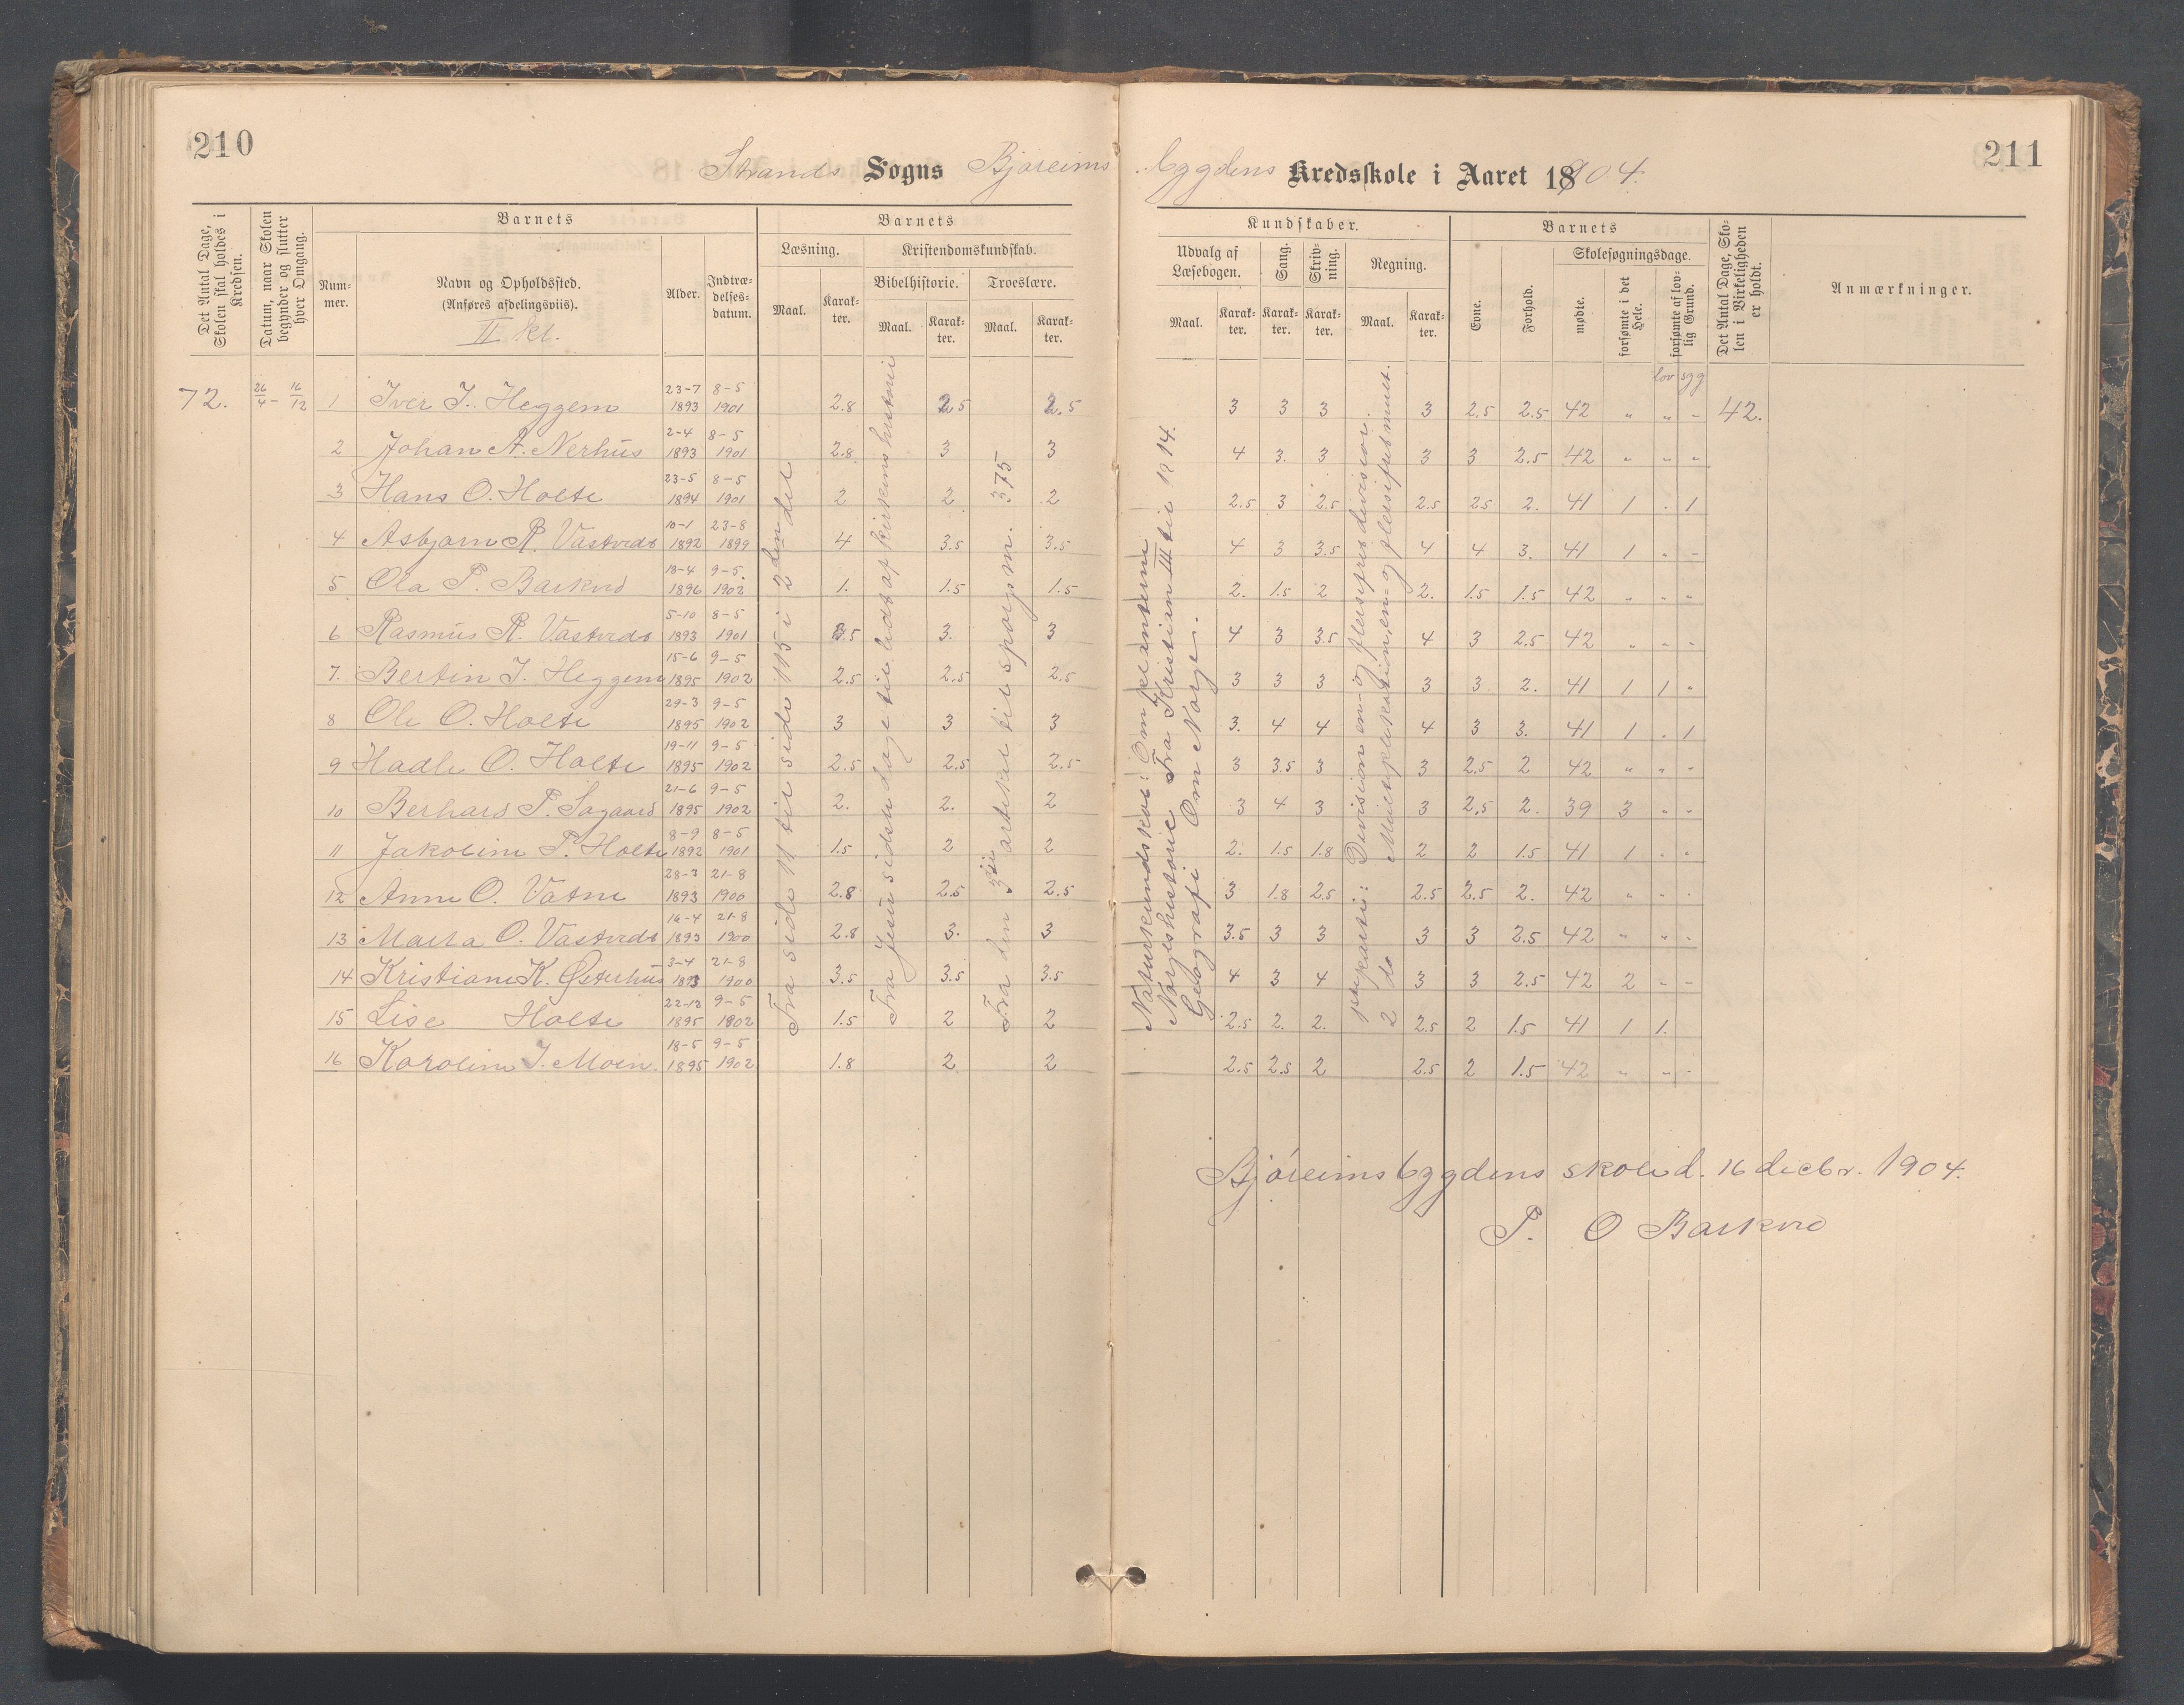 210
211
Strands Sogns Bjøreims bygdens Kredsskole i Aaret 18904.
Det Antal Dage, Skolen skal holdes i Kredsen.
Datum, naar Skolen begynder og slutter hver Omgang.
Barnets
Nummer.
Navn og Opholdssted.
(Anføres afdelingsviis).
II kl.
Alder.
Indtrædelsesdatum.
Barnets
Læsning.
Maal.
Karakter.
Kristendomskundskab.
Bibelhistorie.
Maal.
Karakter.
Troeslære.
Maal.
Karakter.
Kundskaber.
Udvalg af Læsebogen.
Maal.
Karakter.
Sang.
Karakter.
Skrivning.
Karakter.
Regning.
Maal.
Karakter.
Barnets
Evne.
Forhold.
Skolesøgningsdage.
mødte.
forsømte i det Hele.
forsømte af lovlig Grund.
Det Antal Dage, Skolen i Virkeligheden er holdt.
Anmærkninger.
lov syg
72. 26/4 – 16/12 1 Iver I. Heggem 23-7 1893 8-5 1901 2.8 2.5 2.5 3 3 3 3 2.5 2.5 42 " " - 42.
2 Johan A. Nerhus 2-4 1893 8-5 1901 2.8 3 3 4 3. 3 3 3 2.5 42 " " "
3 Hans O. Holte 23-5 1894 8-5 1901 2 2 2 2.5 3 2.5 2.5 25 2. 41 1 . 1
4 Asbjørn R. Vastveds 10-1 1892 23-8 1899 4 3.5 3.5 4 3 3.5 4 4 3. 41 1 " -
5 Ola P. Barkved 18-4 1896 9-5. 1902 1. 1.5 1.5 2. 1.5 2 2. 1.5 1.5 42 " " "
6 Rasmus R. Vastveds 5-10 1893 8-5 1901 3.5 3. 3 4 3 3.5 4 3 2.5 42 " - -
7. Bertin I. Heggem 15-6 1895 9-5 1902 2.5 2.5 2.5 3 3 3 3 3 2. 41 1 1 "
8 Ole O. Holte 29-3 1895 9-5 1902 3 3 3 3. 4 4 4 3 3. 41 1 . 1
9 Hadle O. Holte 19-11 1895 9-5 1902 2.5 2.5 2.5 3 3.5 3 3 2.5 2 42 " " "
10 Berhard P. Sagaard 21-6 1895 9-5 1902 2. 2. 2 3 4 3 3 2.5 2. 39 3 " -
11 Jakobine P. Holte 8-9 1892 8-5 1901 1.5 2 2 2. 1.5 1.8 2 2 1.5 41 1 . "
12 Anne O. Vatne 28-3 1893 21-8 1900 2.8 2.5 2.5 3 1.8 2.5 2.5 2.5 2. 42 " - -
13 Marta O. Vastveds 16-4 1893 21-8 1900 2.8 3. 3 3.5 3 3 3 3 2.5 42 " " -
14 Kristiane K. Østerhus 3-4 1893 21-8 1900 3.5 3.5 3.5 4 3 4 3 3 2.5 42 2 - -
15 Lise Holte 22-12 1895 9-5 1902 1.5 2 2 2.5 2. 2. 2.5 2 1.5 41 1 1.
16 Karoline I. Moen. 18-5 1895 9-5 1902 1.8 2 2 2.5 2.5 2 2.5 2 1.5 42 " " -
Fra side 11 til side 115 i 2den del
Fra Jesu sidste dage til lidt af kirkens historie
Fra den 3die artikel til spørgsm. 375
Naturkundskab: Om planterne
Norgeshistorie Fra Kristian III til 1814.
Geografi Om Norge.
1ste parti: Division en- og flersifret divisior.
2 do Multiplikation, en- og flersifret mult.
Bjøreimsbygdens skole d. 16 decbr. 1904.
P. O Barkved